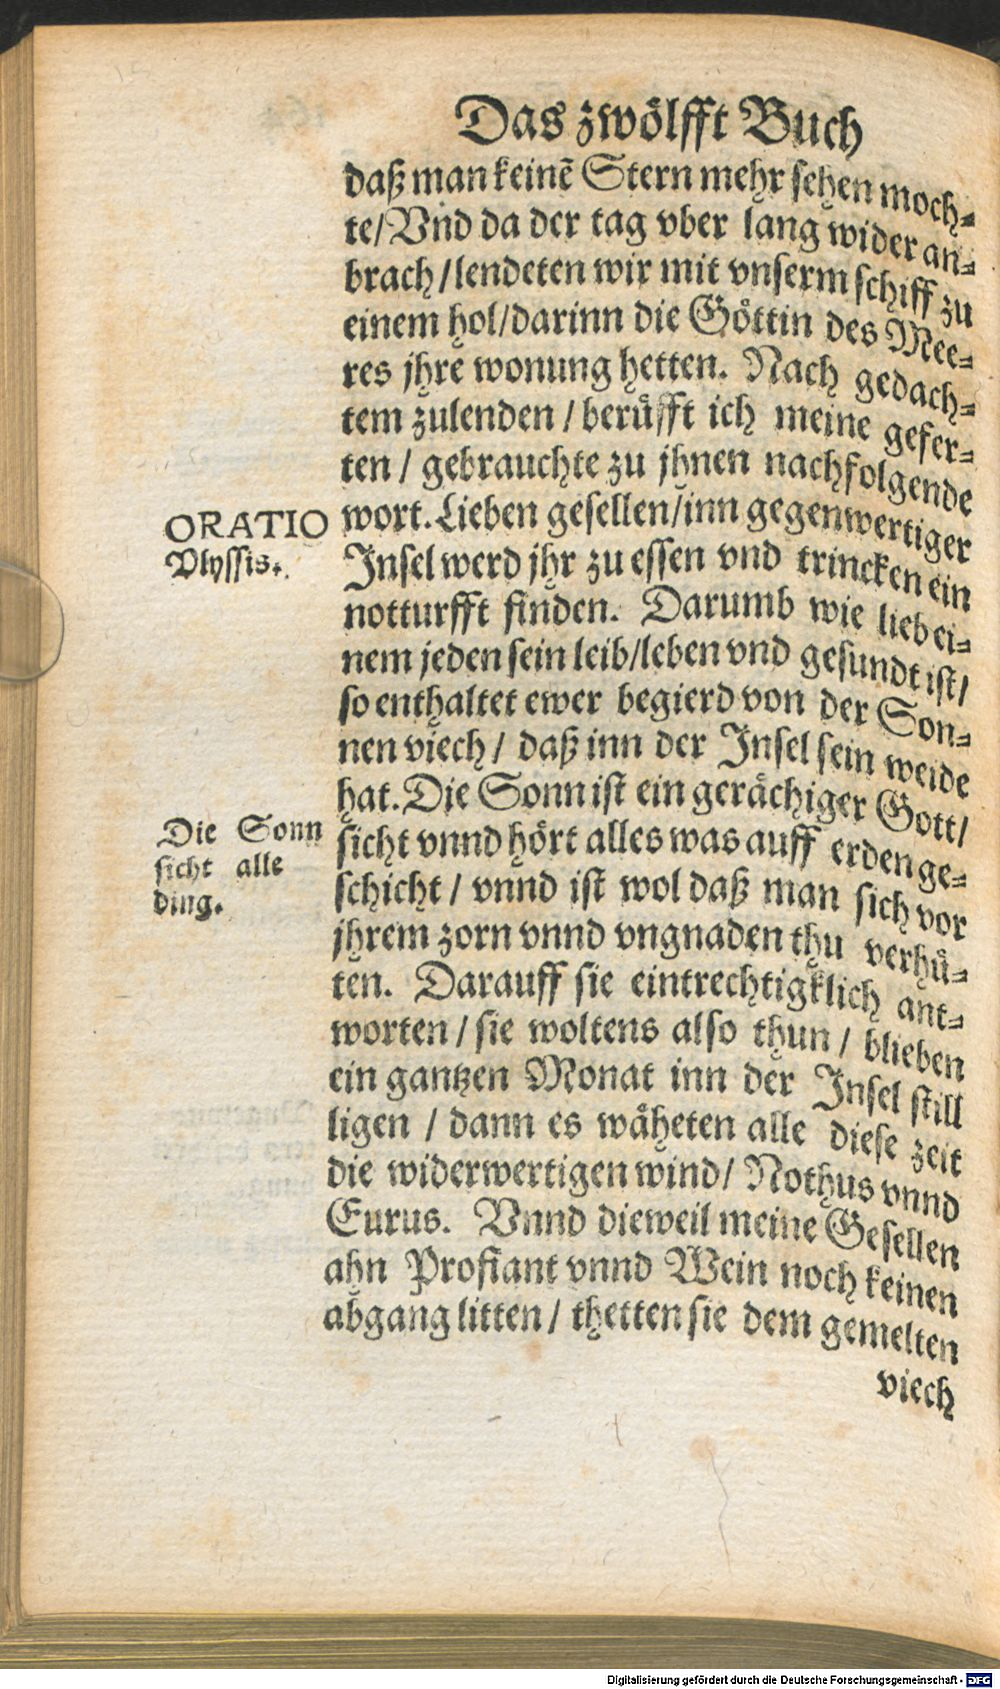 Das zwölfft Buch
daß man keinẽ Stern mehr sehen moch-
te/Vnd da der tag vber lang wider an-
brach/lendeten wir mit vnserm schiff zu
einem hol/darinn die Göttin des Mee-
res jhre wonung hetten. Nach gedach-
tem zulenden/berüfft ich meine gefer-
ten/gebrauchte zu jhnen nachfolgende
ORATIO
Vlyssis.
wort. Lieben gesellen/inn gegenwertiger
Insel werd jhr zu essen vnd trincken ein
notturfft finden. Darumb wie lieb ei-
nem jeden sein leib/leben vnd gesundt ist/
so enthaltet ewer begierd von der Son-
nen viech/daß inn der Insel sein weide
hat. Die Sonn ist ein gerächiger Gott/
Die Sonn
sicht alle
ding.
sicht vnnd hört alles was auff erden ge-
schicht/vnnd ist wol daß man sich vor
jhrem zorn vnnd vngnaden thu verhü-
ten. Darauff sie eintrechtigklich ant-
worten/sie woltens also thun/blieben
ein gantzen Monat inn der Insel still
ligen/dann es wäheten alle diese zeit
die widerwertigen wind/Nothus vnnd
Eurus. Vnnd dieweil meine Gesellen
ahn Profiant vnnd Wein noch keinen
abgang litten/thetten sie dem gemelten
viech
Digitalisierung gefördert durch die Deutsche Forschungsgemeinschaft - DFG